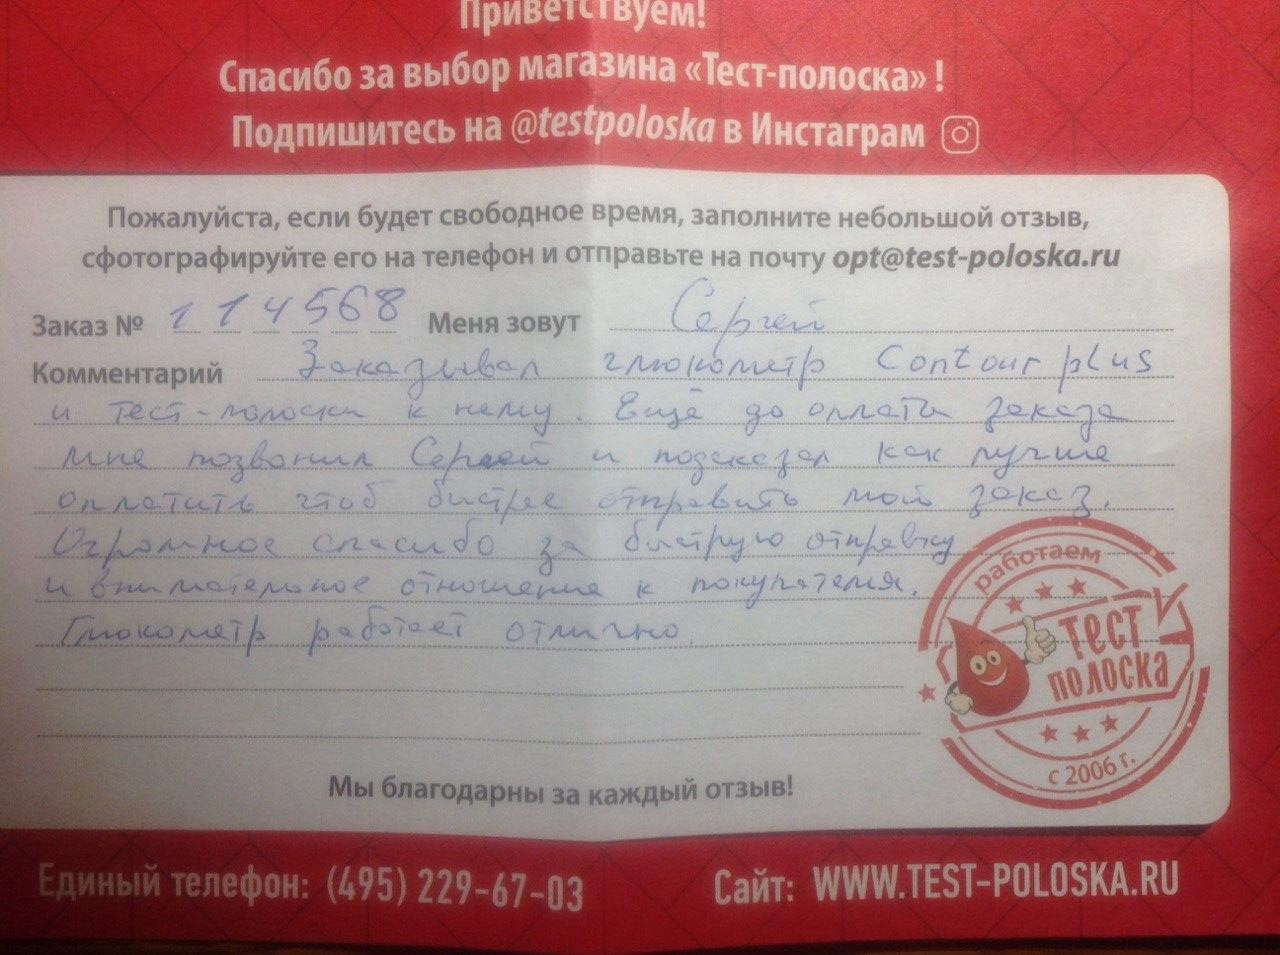 Приветствуем!
Спасибо за выбор магазина «Тест-полоска» !
Подпишитесь на @testpoloska в Инстаграм
Пожалуйста, если будет свободное время, заполните небольшой отзыв,
сфотографируйте его на телефон и отправьте на почту opt@test-poloska.ru
Заказ № 114568 Меня зовут Сергей
Комментарий Заказывал глюкометр Contour plus
и тест-полоски к нему. Ещё до оплаты заказа
мне позвонил Сергей и подсказал как лучше
оплатить чтоб быстрее отправить мой заказ.
Огромное спасибо за быструю отправку
и внимательное отношение к покупателям.
Глюкометр работает отлично.
работаем
ТЕСТ
ПОЛОСКА
с 2006 г.
Мы благодарны за каждый отзыв!
Единый телефон: (495) 229-67-03 Сайт: WWW.TEST-POLOSKA.RU